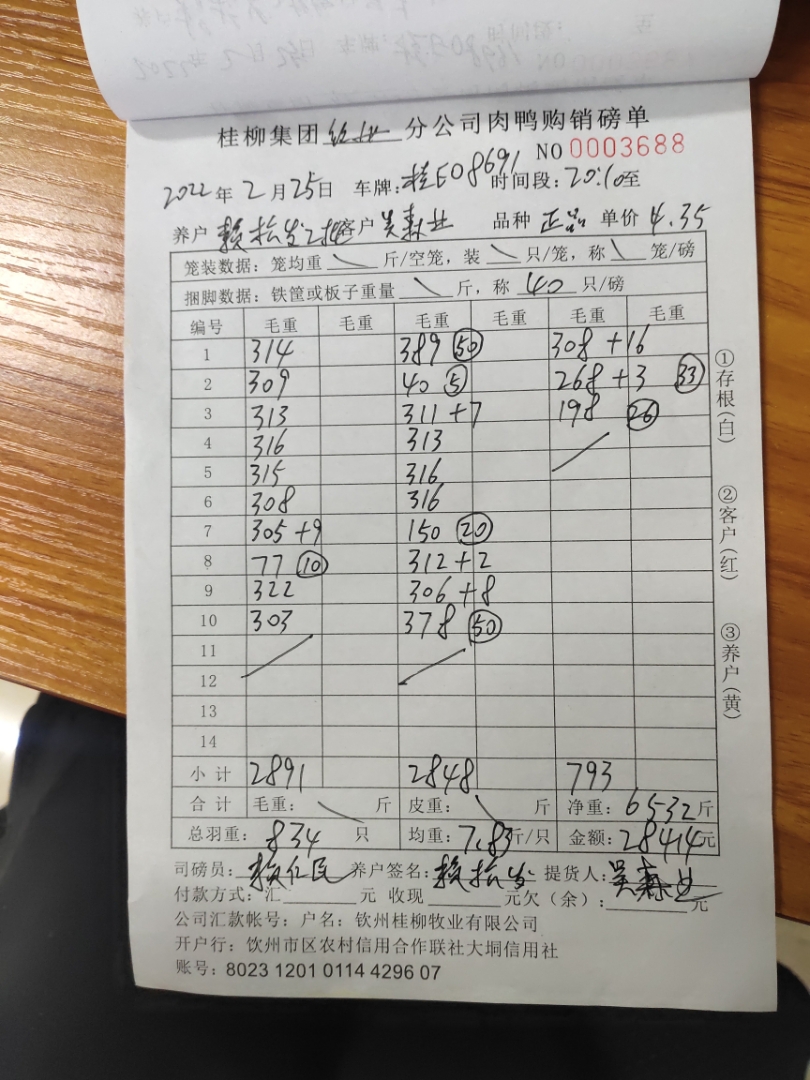 桂柳集团 牧业 分公司肉鸭购销磅单
NO 0003688
2022年2月25日 车牌:桂E08691 时间段:20:10至
养户 赖拾发 客户 吴森业 品种 正品 单价 4.35
笼装数据:笼均重 斤/空笼,装 只/笼,称 笼/磅
捆脚数据:铁筐或板子重量 斤,称 40 只/磅
编号 毛重 毛重 毛重 毛重 毛重 毛重
1 314 389 50 308 +16
2 309 40 5 268 +3 33
3 313 311 +7 198 26
4 316 313
5 315 316
6 308 316
7 305 +9 150 20
8 77 10 312 +2
9 322 306 +8
10 303 378 50
11
12
13
14
小计 2891 2848 793
合计 毛重: 斤 皮重: 斤 净重:6532斤
总羽重:834 只 均重:7.83斤/只 金额:28414元
司磅员:赖仁民 养户签名:赖拾发 提货人:吴森业
付款方式:汇 元 收现 元欠(余): 元
公司汇款帐号:户名:钦州桂柳牧业有限公司
开户行:饮州市区农村信用合作联社大垌信用社
账号:8023 1201 0114 4296 07
①存根(白)
②客户(红)
③养户(黄)